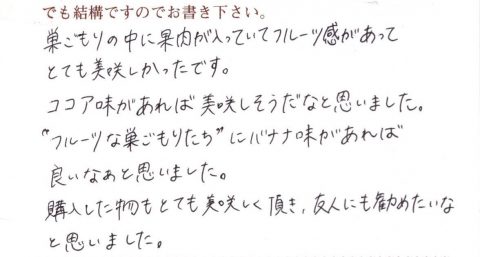 でも結構ですのでお書き下さい。
巣ごもりの中に果肉が入っていてフルーツ感があって
とても美咲しかったです。
ココア味があれば美咲しそうだなと思いました。
“フルーツな巣ごもりたち”にバナナ味があれば
良いなぁと思いました。
購入した物もとても美咲しく頂き、友人にも勧めたいな
と思いました。